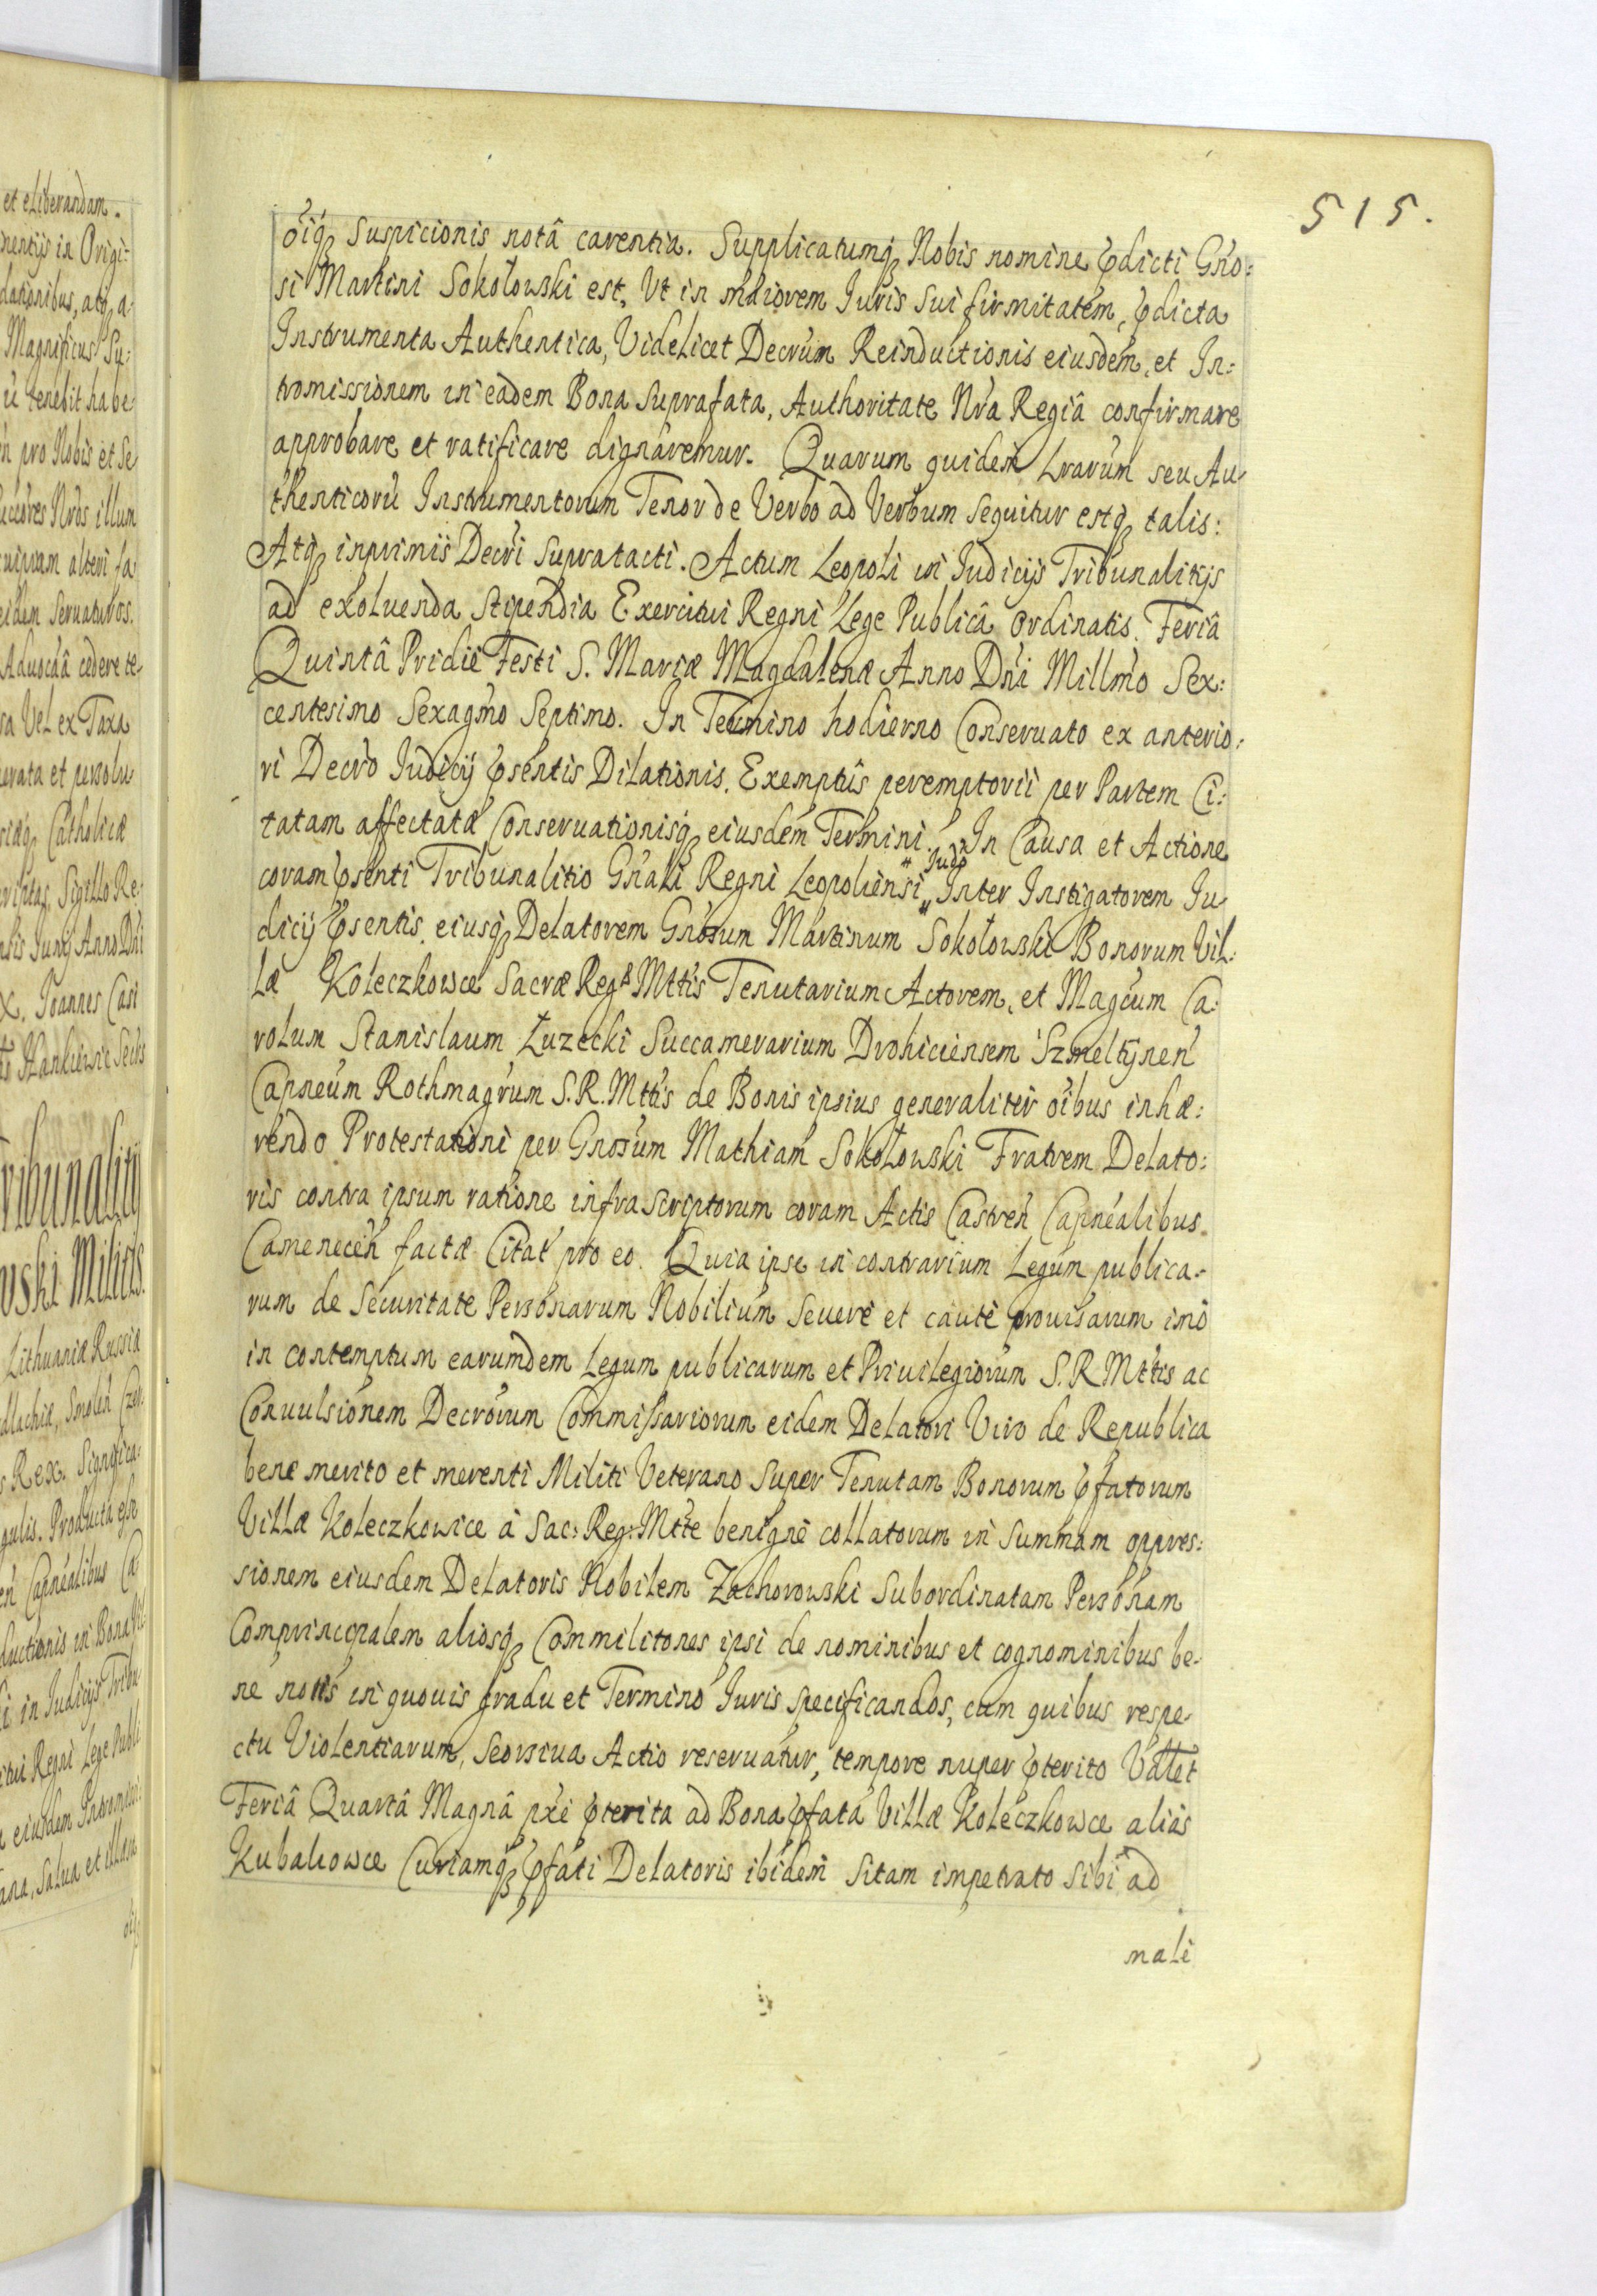 515.
et eliberandam.
nentijs in Origi-
dationibus, atq; a-
Magnificus Su:
tenebit habe-
pro Nobis et Se
illum
alteri fa-
eidem Seruaturos.
cedere te-
Vel ex Taxa
et persolu-
Catholicæ
Sigillo Re-
Junij Anno Dñi
Joannes Casi
Tribunalitij
Militis.
Lithuaniæ Russiæ
Smoleń Czer-
Rex. Significa-
Producta esse
Capnéalibus Ca-
ductionis in Bona
in Judicijs Tribu
Regni Lege Publi
eiusdem Intromiss-
Salua et illæsa
õiq; Suspicionis notâ carentia. Supplicatumq; Nobis nomine p̃dicti Gño:
si Martini Sokołowski est, Vt in maiorem Juris Sui firmitatem, p̃dicta
Instrumenta Authentica, Videlicet Decrũm Reinductionis eiusdem, et In:
tromissionem in eadem Bona Suprafata, Authoritate Nr̃a Regiâ confirmare
approbare et ratificare dignaremur. Quarum quidem Lr̃arum seu Au-
thenticorũ Instrumentorum Tenor de Verbo ad Verbum Sequitur estq; talis:
Atq; inprimis Decr̃i Supratacti. Actum Leopoli in Judicijs Tribunalitijs
ad exoluenda Stipendia Exercitui Regni Lege Publicâ Ordinatis. Feriâ
Quintâ Pridiè Festi S. Mariæ Magdalenæ Anno Dñi Millm̃o Sex:
centesimo Sexagm̃o Septimo. In Termino hodierno Conseruato ex anterio-
ri Decr̃o Judicij p̃sentis Dilationis. Exemptũs peremptorii per Partem Ci:
tatam affectatæ Conseruationisq; eiusdem Termini. In Causa et Actione
coram p̃senti Tribunalitio Gñali Regni Leopoliensi " Judo " Inter Instigatorem Ju-
dicij p̃sentis, eiusq; Delatorem Gñosum Martinum Sokołowski Bonorum Vil-
læ Koleczkowce Sacræ Reg. Mttis Tenutarium Actorem, et Magcum Ca-
rolum Stanislaum Łuzecki Succamerarium Drohiciensem Szmeltyneń
Capneũm Rothmagrum S.R.Mttis de Bonis ipsius generaliter õibus inhæ:
rendo Protestationi per Gñosum Mathiam Sokołowski Fratrem Delato:
ris contra ipsum ratione infrascriptorum coram Actis Castreń Capnéalibus
Cameneceń factæ Citat pro eo. Quia ipse in contrarium Legum publica-
rum de Securitate Personarum Nobilium Seuerè et cautè prouisarum imò
in contemptum earumdem Legum publicarum et Priuilegiorum S.R.Mttis ac
Conuulsionem Decrorum Commissariorum eidem Delatori Viro de Republica
bene merito et merenti Militi Veterano Super Tenutam Bonorum p̃fatorum
Villæ Koleczkowice à Sac: Reg: Mtte benignè collatorum in Summam oppres:
sionem eiusdem Delatoris Nobilem Zachorowski Subordinatam Personam
Comprincipalem aliosq; Commilitones ipsi de nominibus et cognominibus be-
ne notis in quouis gradu et Termino Juris Specificandos, cum quibus respe-
ctu Violentiarum, Seorsiua Actio reseruatur, tempore nuper p̃terito Valet
Feriâ Quartâ Magnâ pxĩ p̃terita ad Bona p̃fata Villæ Koleczkowce aliàs
Kubaliowce Curiamq; p̃fati Delatoris ibidem Sitam impetrato Sibi ad
nali